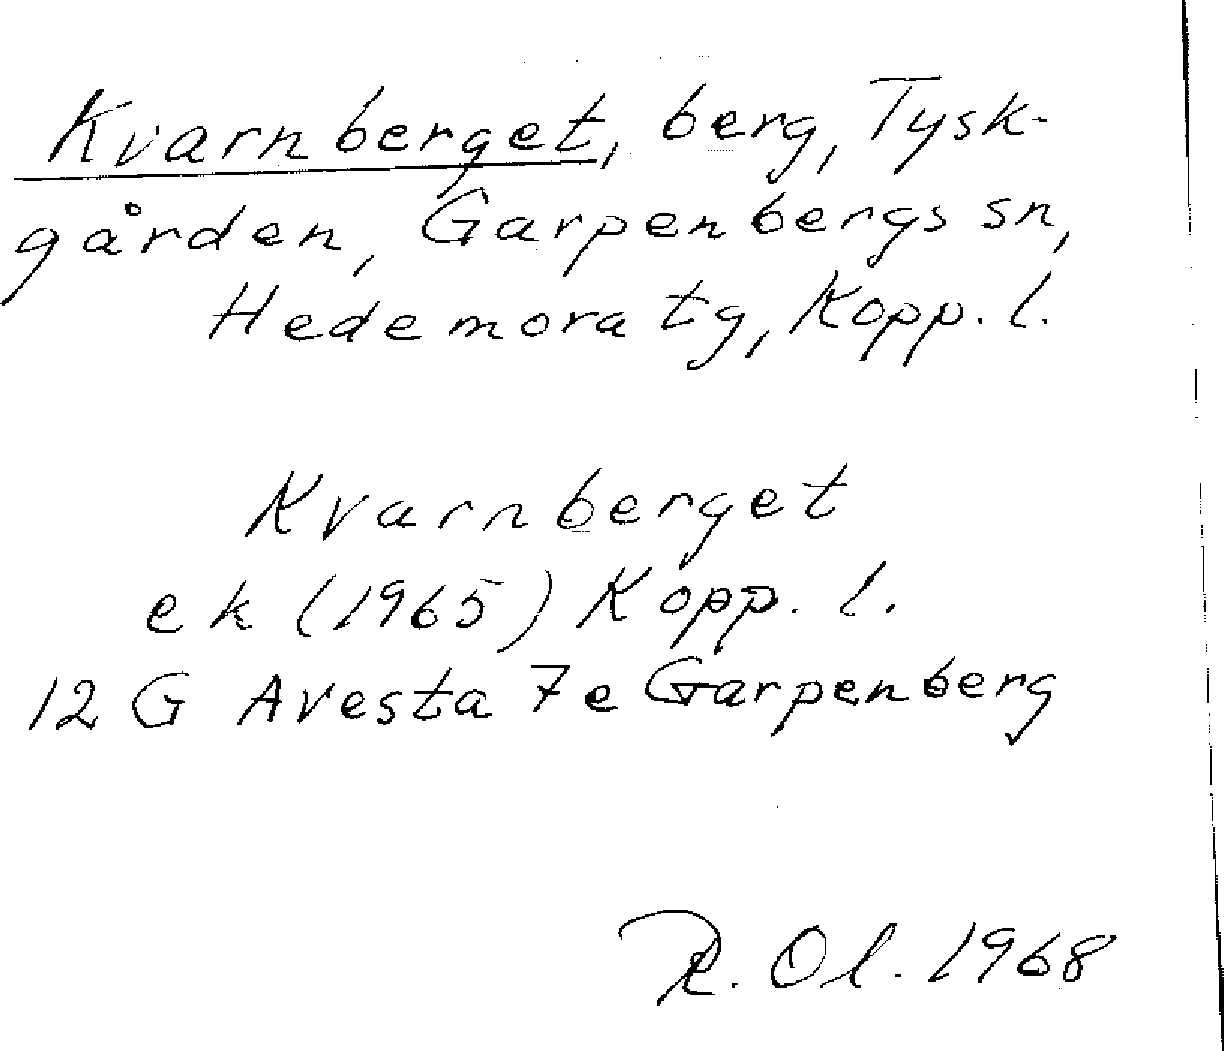 Kvarnberget, berg, Tysk-
gården, Garpenbergs sn,
Hedemora tg, Kopp. l.
Kvarnberget
ek (1965) Kopp. l.
12 G Avesta 7e Garpenberg
R. Ol. 1968